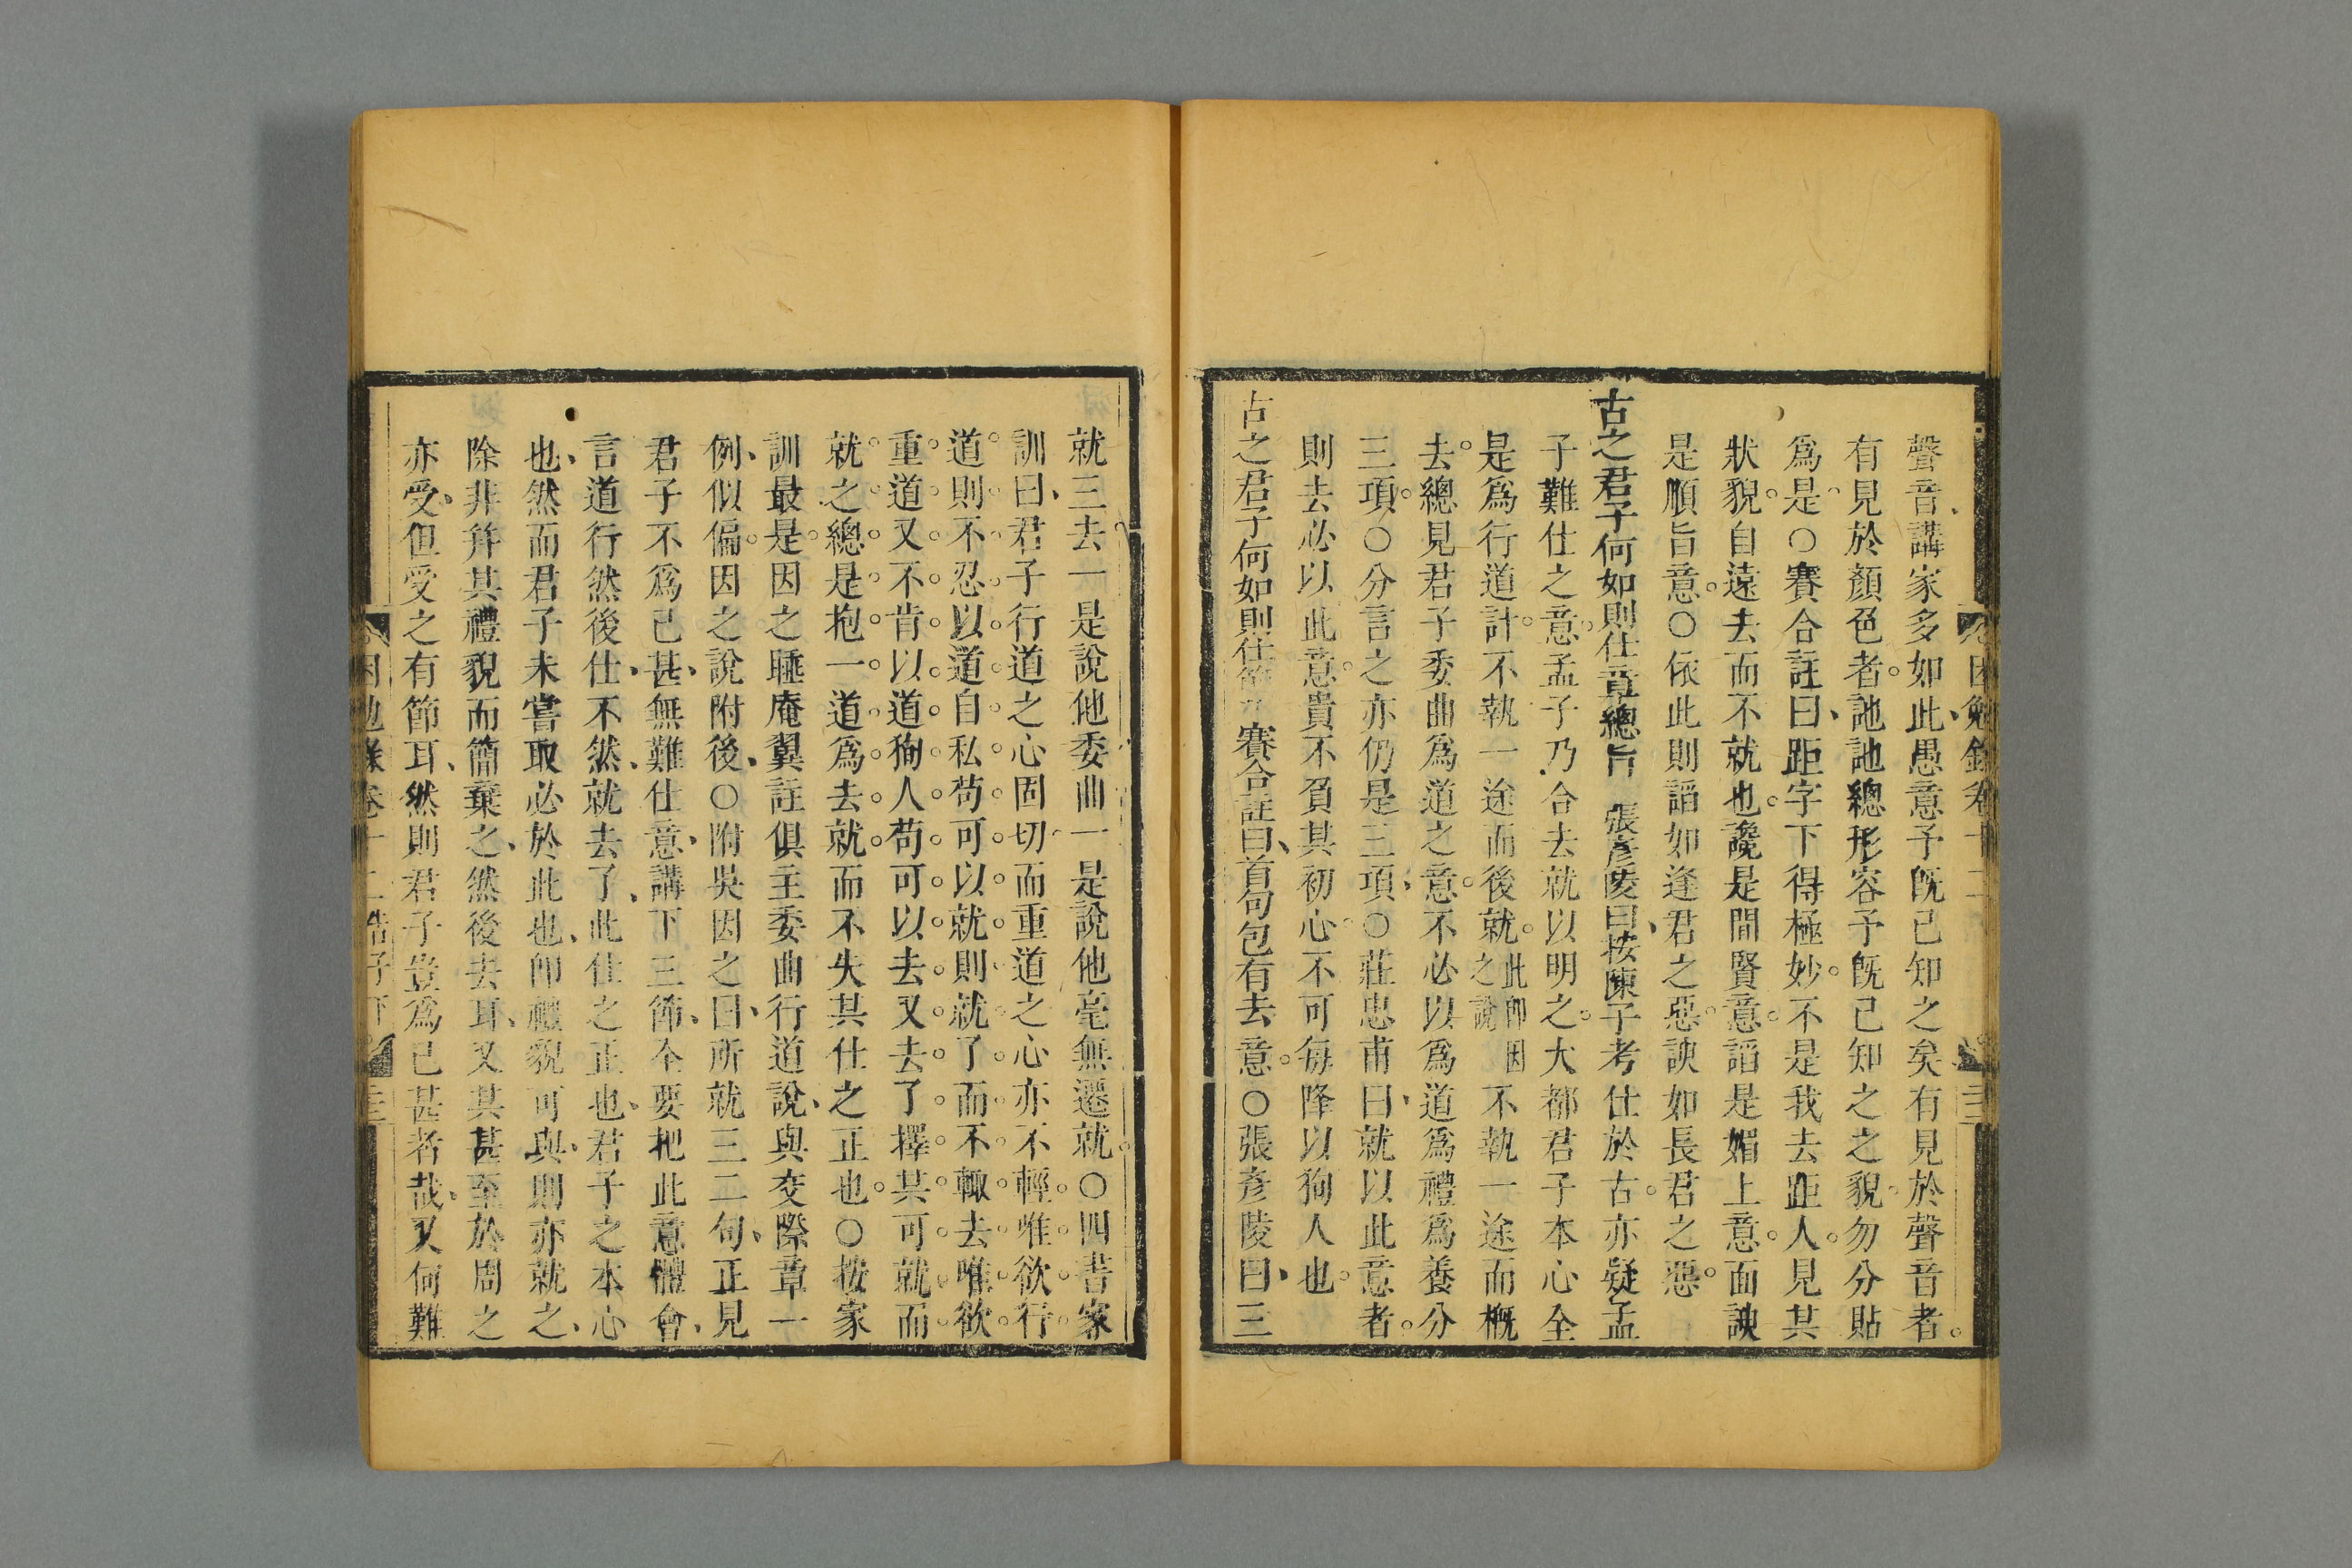 聲音講家多如此愚意予既已知之矣有見於聲音者
有見於顏色者訑訑總形容予既已知之之貌勿分貼
爲是○賽合註曰距字下得極妙不是我去距人見其
狀貌自遠去而不就也讒是間賢意謟是媚上意面諛
是順旨意○依此則謟如逢君之惡諛如長君之惡
古之君子何如則仕章總旨 張彥陵曰按陳子考仕於古亦疑孟
子難仕之意孟子乃合去就以明之大都君子本心全
是爲行道計不執一途而後就此卽因之說不執一途而槪
去總見君子委曲爲道之意不必以爲道爲禮爲養分
三項○分言之亦仍是三項○莊忠甫曰就以此意者
則去必以此意貴不負其初心不可每降以狥人也
古之君子何如則仕節 賽合註曰首句包有去意○張彥陵曰三
就三去一是說他委曲一是說他毫無遷就○四書家
訓曰君子行道之心固切而重道之心亦不輕唯欲行
道則不忍以道自私苟可以就則就了而不輙去唯欲
重道又不肯以道狥人苟可以去又去了擇其可就而
就之總是抱一道爲去就而不失其仕之正也○按家
訓最是因之睡庵翼註俱主委曲行道說與交際章一
例似偏因之說附後○附吳因之曰所就三二句正見
君子不爲已甚無難仕意講下三節全要把此意體會
言道行然後仕不然就去了此仕之正也君子之本心
也然而君子未嘗取必於此也卽禮貌可與則亦就之
除非幷其禮貌而簡棄之然後去耳又其甚至於周之
亦受但受之有節耳然則君子豈爲已甚者哉又何難
困勉錄卷十二 告子下